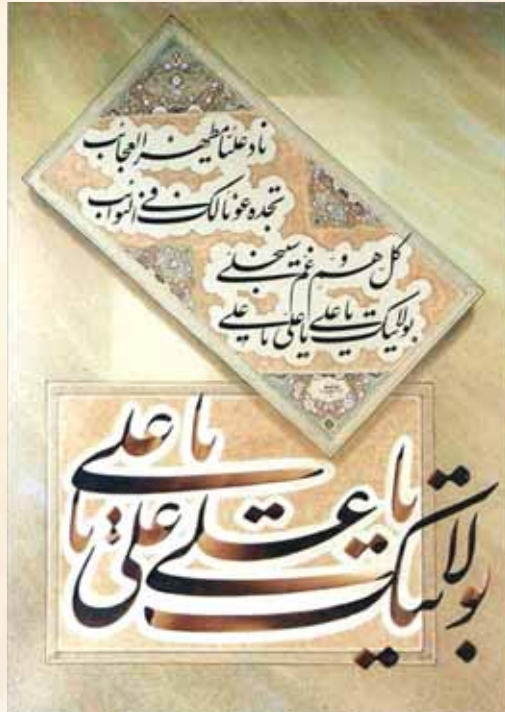 ناد علیا مظهر العجائب
تجده عونا لک فی النوائب
کل هم و غم سینجلی
بولایتک یا علی یا علی یا علی
بولایتک یا علی یا علی یا علی